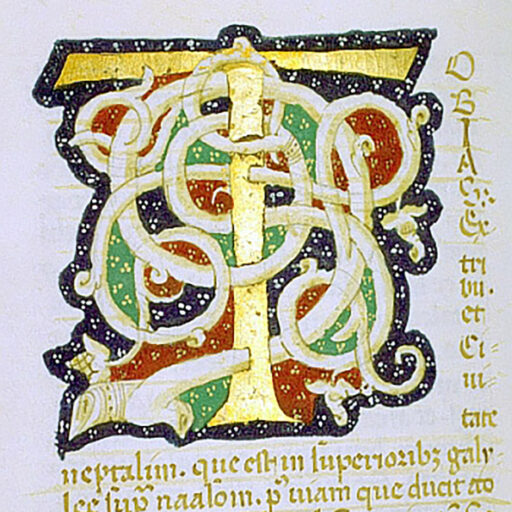 T
O
B
I
A
S.
Ex
tri
bu.
et
Ci-
ui-
tate
neptalim. que est in superioribꝫ galy-
lee sup̄ naason. p̄ uiam que ducit ad